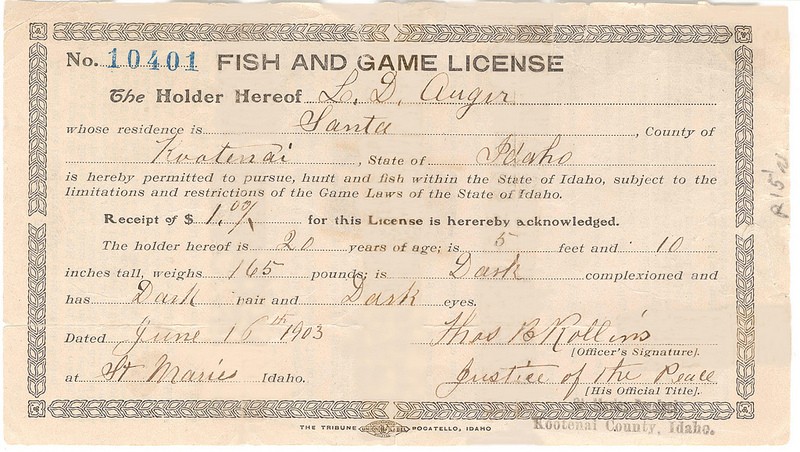 No. 10401 FISH AND GAME LICENSE
The Holder Hereof L. D. Auger
whose residence is Santa, County of
Kootenai, State of Idaho
is hereby permitted to pursue, hunt and fish within the State of Idaho, subject to the
limitations and restrictions of the Game Laws of the State of Idaho.
Receipt of $ 1.00/ for this License is herereby acknowledged.
The holder hereof is 20 years of age; is 5 feet and 10
inches tall, weighs 165 pounds; is Dark complexioned and
has Dark hair and Dark eyes.
Dated June 16th 1903 Thos B Kollins
[Officer's Signature].
at St Maries Idaho. Justice of the Peace
[His Official Title].
Kootenai County, Idaho.
THE TRIBUNE POCATELLO, IDAHO